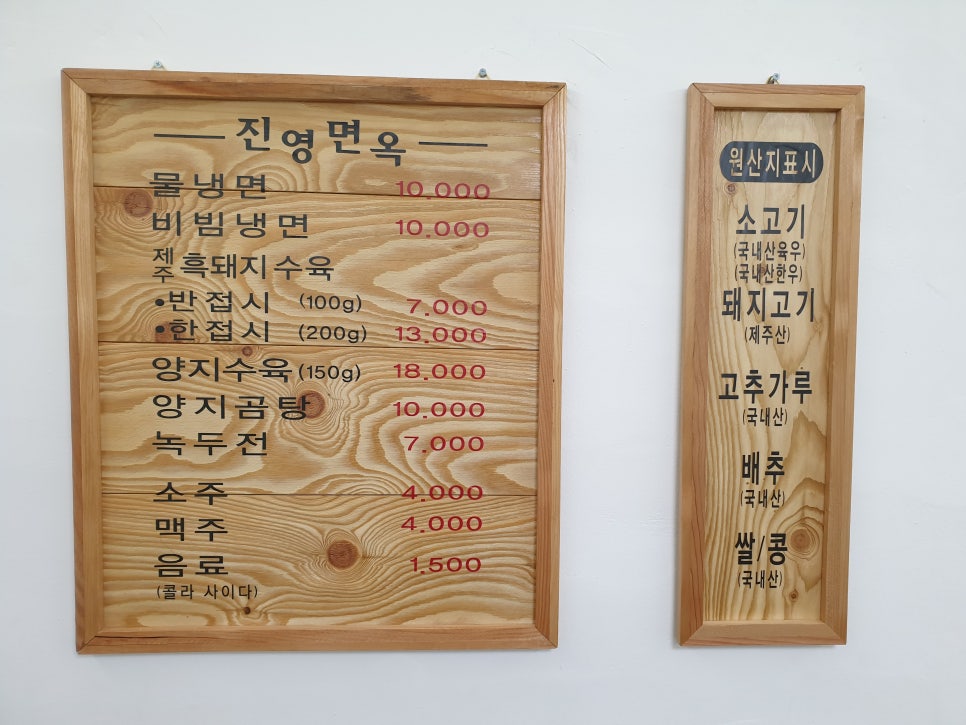 진영면옥
물냉면 10.000
비빔냉면 10.000
제주 흑돼지수육
•반접시 (100g) 7.000
•한접시 (200g) 13.000
양지수육(150g) 18.000
양지곰탕 10.000
녹두전 7.000
소주 4.000
맥주 4.000
음료 1.500
(콜라 사이다)
원산지표시
소고기
(국내산육우)
(국내산한우)
돼지고기
(제주산)
고추가루
(국내산)
배추
(국내산)
쌀/콩
(국내산)